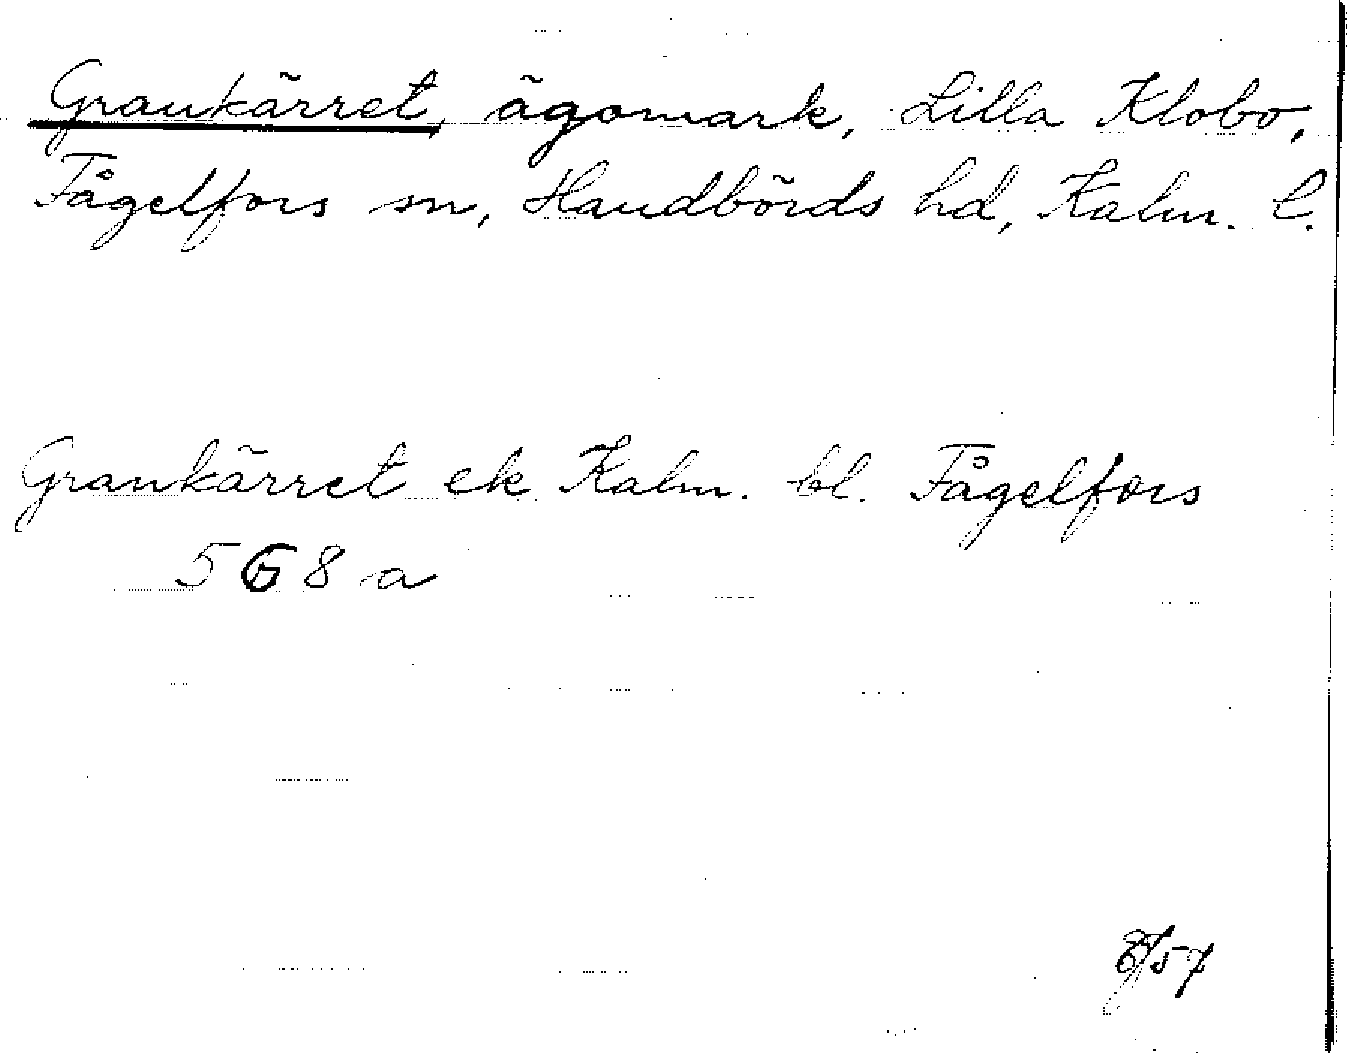 Grankärret, ägomark, Lilla Klobo,
Fågelfors sn, Handbörds hd, Kalm. l.
Grankärret ek Kalm. bl. Fågelfors
568 a